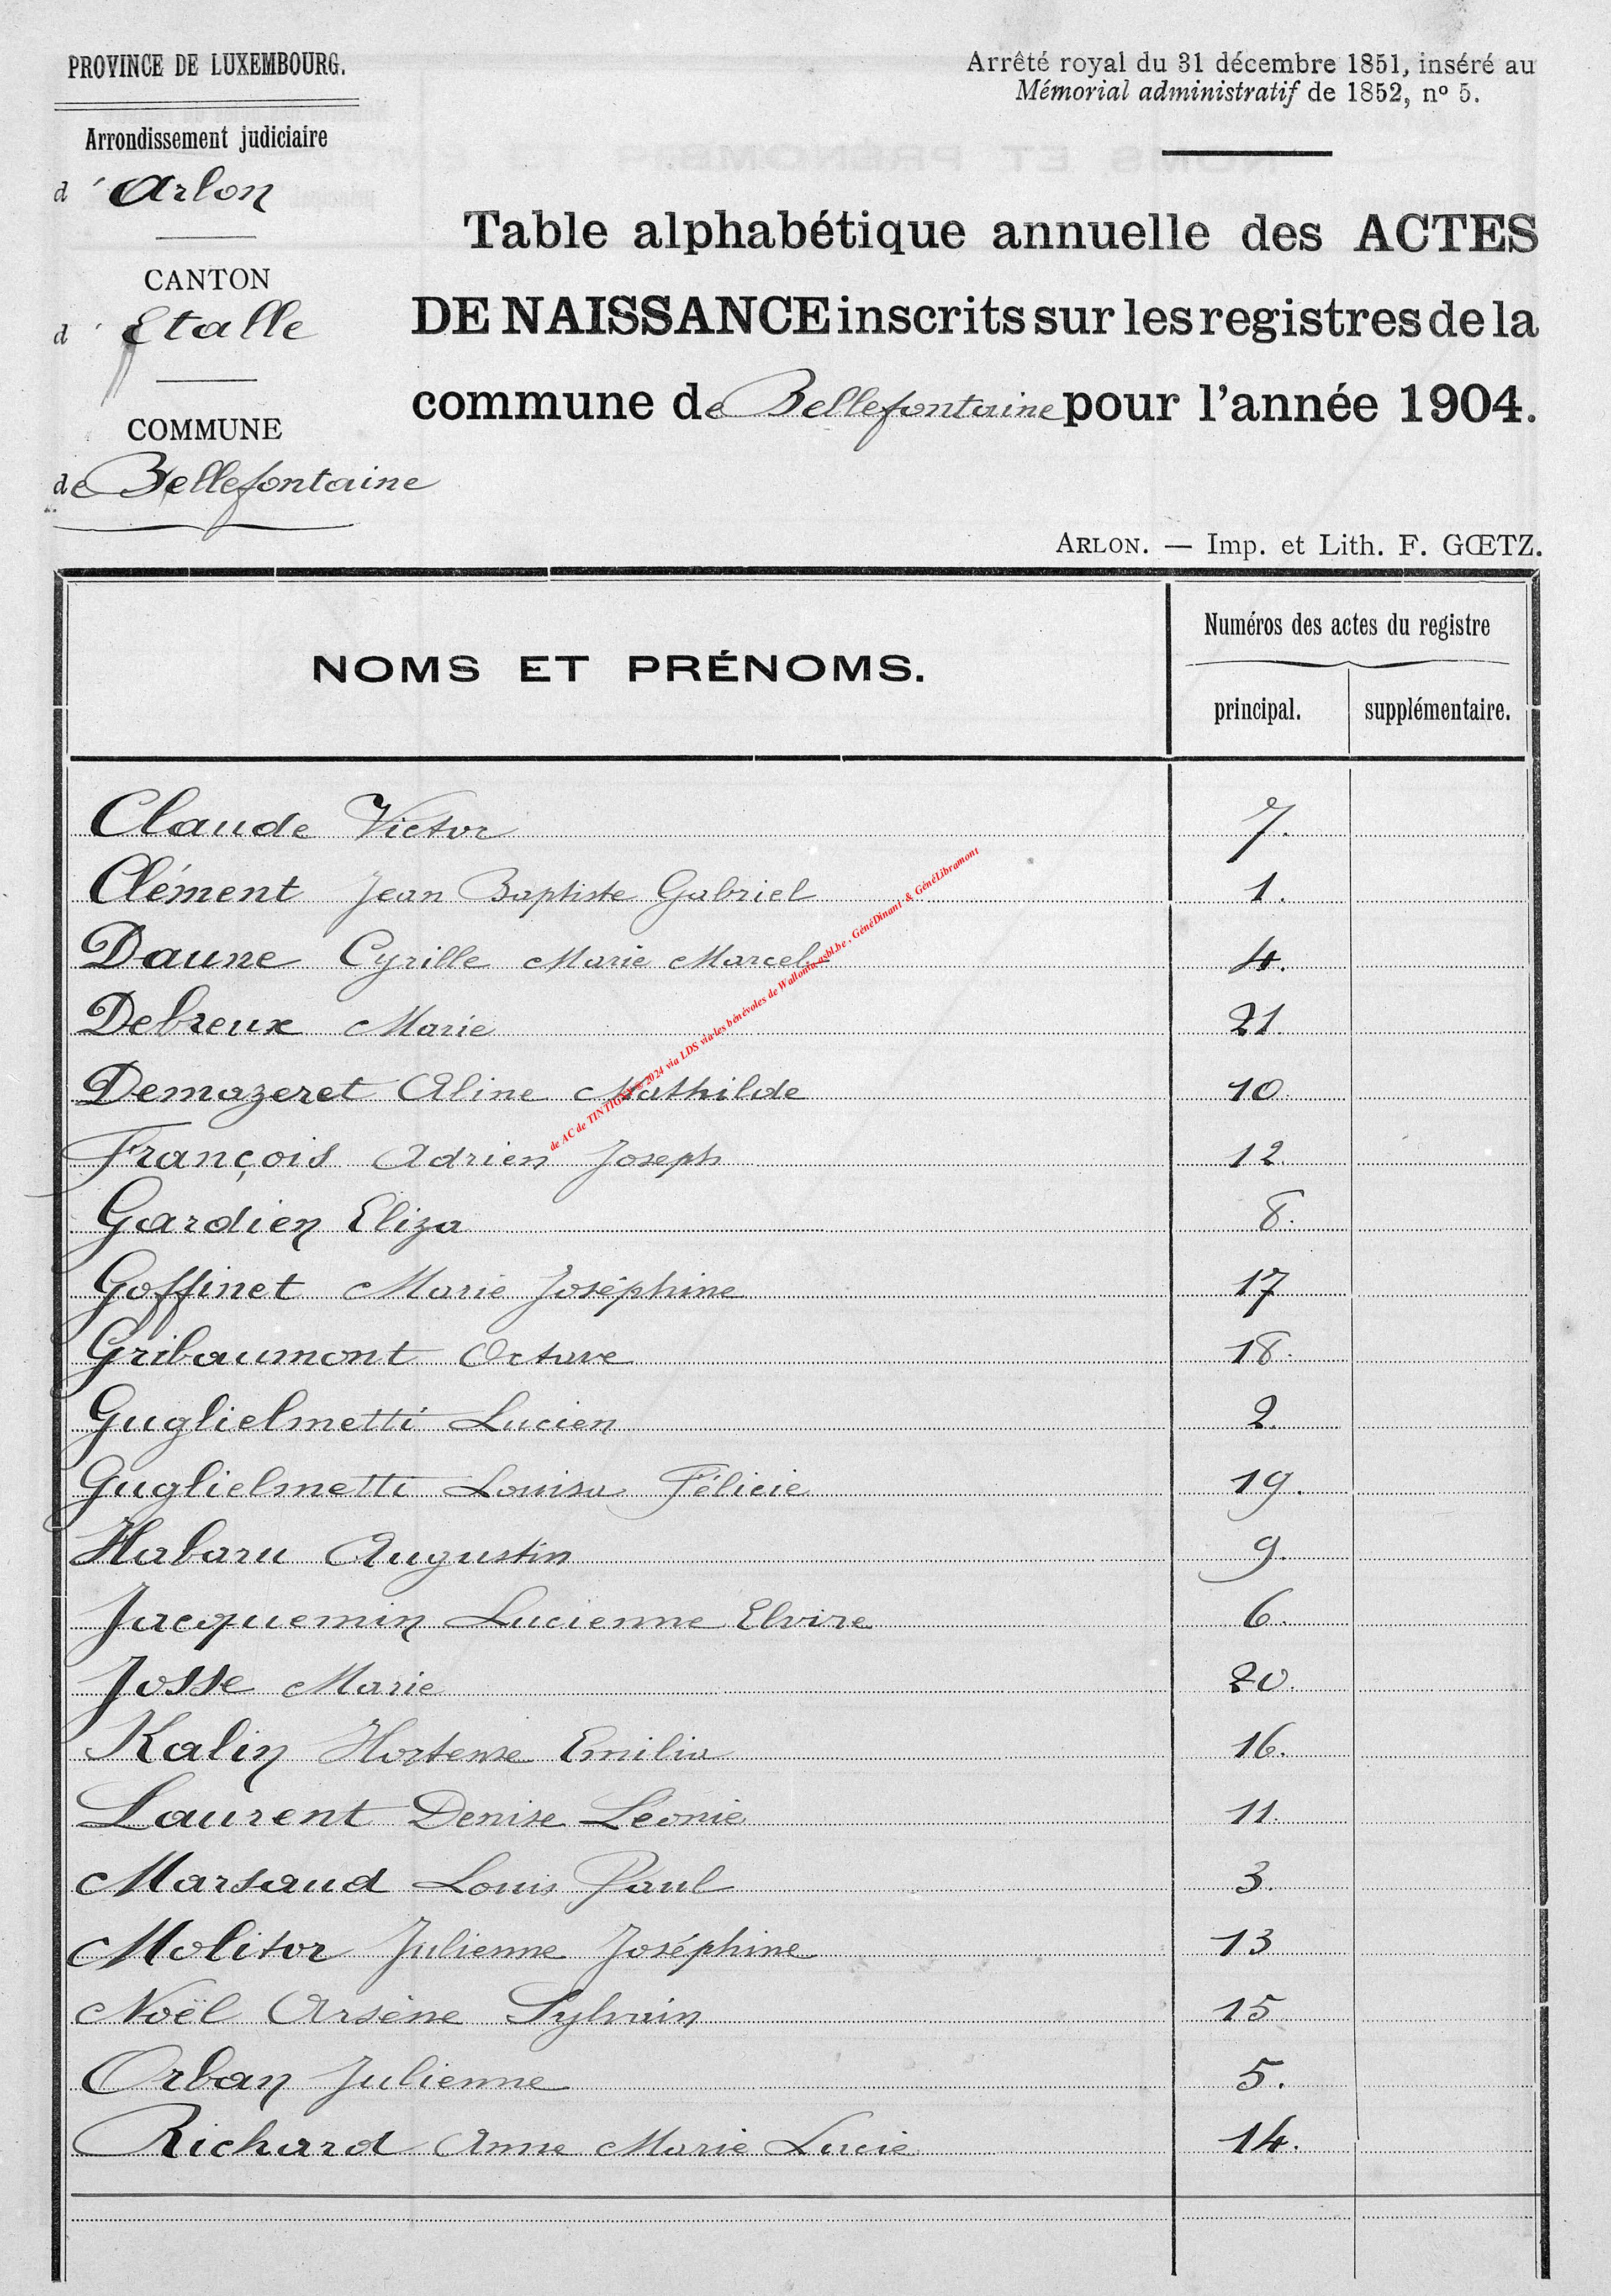 PROVINCE DE LUXEMBOURG.
Arrêté royal du 31 décembre 1851, inséré au
Mémorial administratif de 1852, nº 5.
Arrondissement judiciaire
d'Arlon
CANTON
d'Etalle
COMMUNE
de Bellefontaine
Table alphabétique annuelle des ACTES
DE NAISSANCE inscrits sur les registres de la
commune de Bellefontaine pour l'année 1904.
ARLON. — Imp. et Lith. F. GŒTZ.
NOMS ET PRÉNOMS.
Numéros des actes du registre
principal. supplémentaire.
Claude Victor 7.
Clément Jean Baptiste Gabriel 1.
Daune Cyrille Marie Marcel 4.
Debreux Marie 21.
Demazeret Aline Mathilde 10
François Adrien Joseph 12.
Gardien Eliza 8.
Goffinet Marie Joséphine 17
Gribaumont Octave 18.
Guglielmetti Lucien 2.
Guglielmetti Louisa Félicie 19.
Habaru Augustin 9.
Jacquemin Lucienne Elvire 6.
Josse Marie 20.
Kalin Hortense Emilia 16.
Laurent Denise Léonie 11.
Marsaud Louis Paul 3.
Molitor Julienne Joséphine 13
Noël Arsène Sylvain 15
Orban Julienne 5.
Richard Anne Marie Lucie 14.
de AC de TINTIGNY © 2024 via LDS via les bénévoles de Wallonia-asbl.be , GénéDinant & GénéLibramont